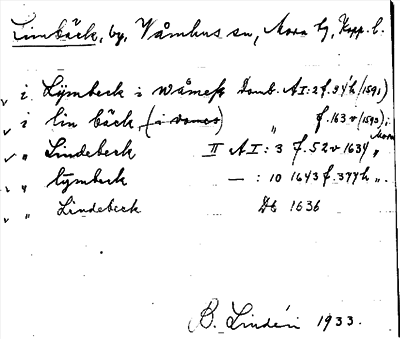 Limbäck, by, Våmhus sn, Mora tg, Kopp. l.
v i Lÿmbeck i wåmess Domb. AI:2 f. 94 h (1591)
v i lin bäck (i vames) " f. 163 v (1593) i Mora
v " Lindebeck II AI: 3 f. 52 v 1634 "
v " lÿmbeck — : 10 1643 f. 377 h "
v " Lindebeck Db 1636
B. Lindén 1933.